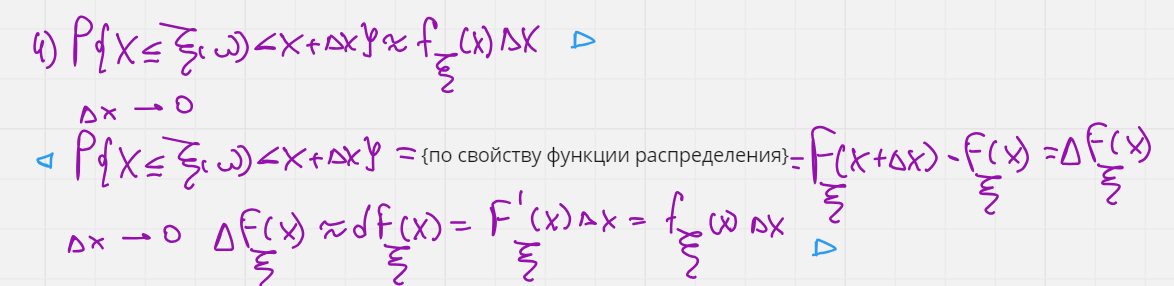 4) P{x ≤ ξ(ω) < x + Δx} ≈ f_ξ(x) Δx ▷
Δx → 0
◁ P{x ≤ ξ(ω) < x + Δx} = {по свойству функции распределения} = F_ξ(x + Δx) - F_ξ(x) = ΔF_ξ(x)
Δx → 0 ΔF_ξ(x) ≈ dF_ξ(x) = F'_ξ(x) Δx = f_ξ(x) Δx ▷